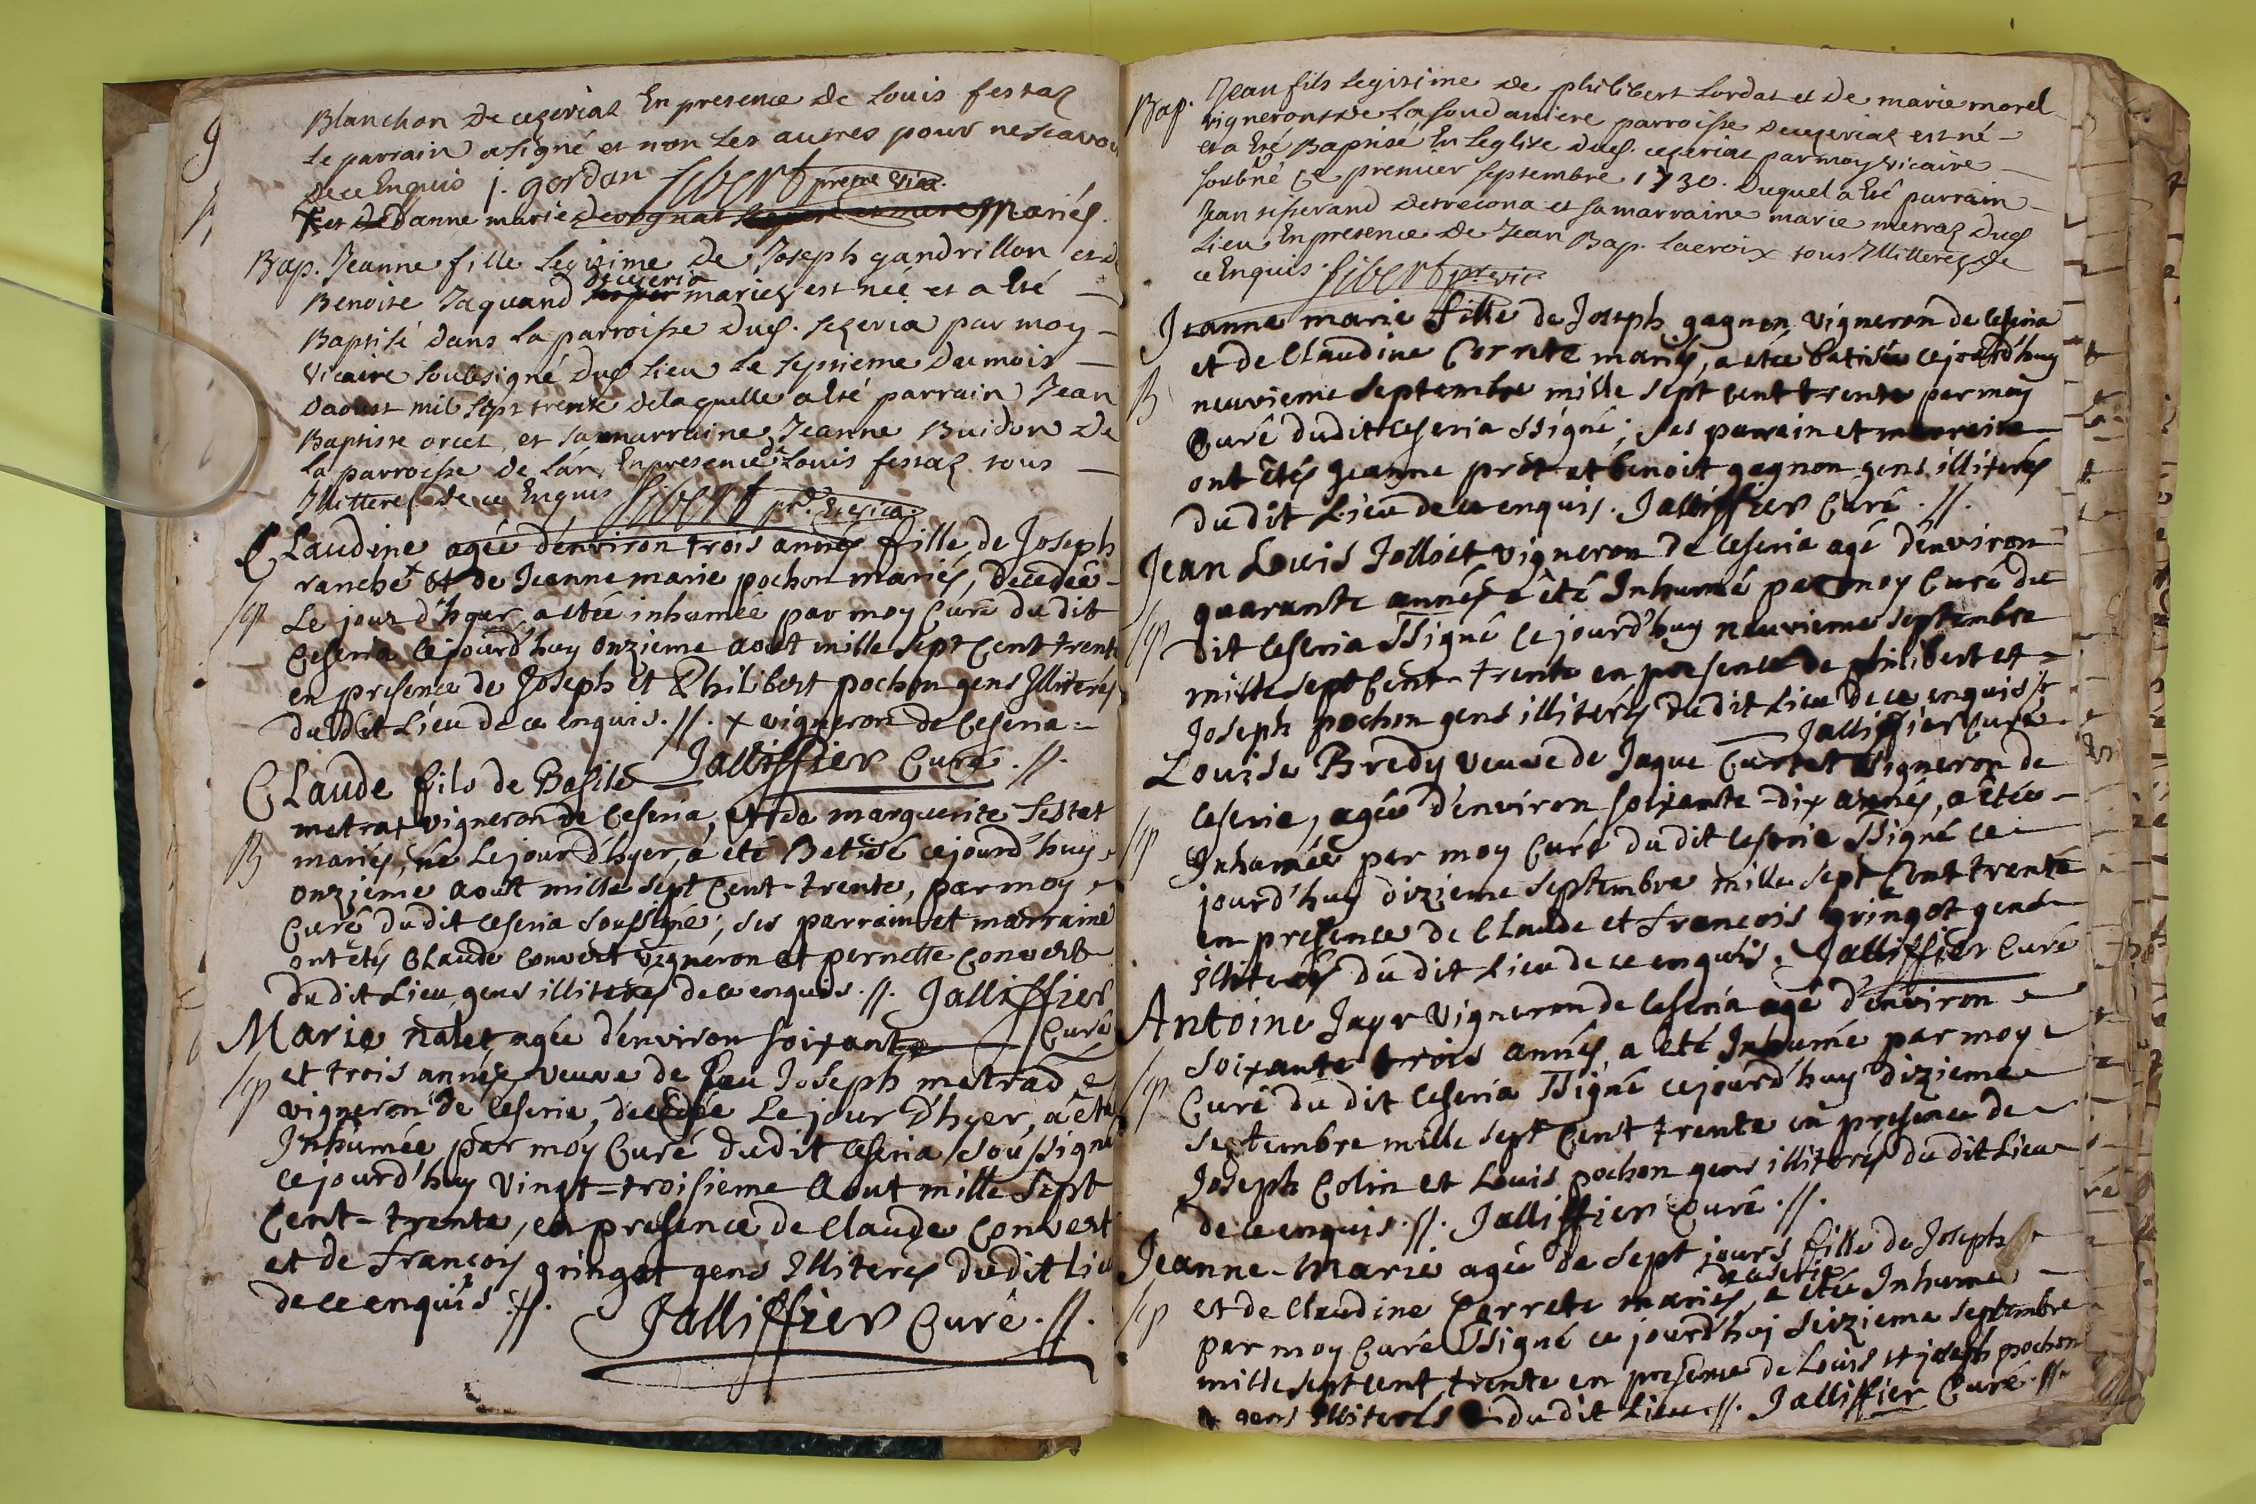 9
Blanchon De cezeriat En presence de Louis festaz
le parrain a signé et non les autres pour ne scavoir
de ce Enquis j. gordan Sibert pretre vica.
et de danne marie mariés
Bap. Jeanne fille Legitime de Joseph gandrillon et de
de cezeria
Benoite Jaquand mariez est neé et a Eté
Baptisé dans la parroisse dud. sezeria par moy
vicaire soubsigné dud. lieu le septieme du mois
daoust mil sept trente de laquelle a Eté parrain Jean
Baptiste orcet et sa marraine Jeanne Buidon de
la parroisse de lár, En presence de Louis festaz tous
Illitterez de ce Enquis Sibert pr.
Claudine agée d'environ trois annés fille de Joseph
ranche + et de Jeanne marie pochon mariés, decedeé
Sep
Le jour d'hyer, a etée inhumée par moy Curé du dit
Ceseria ce jourd'huy onzieme aoüt mille sept Cent trente
en presence de Joseph et Philibert pochon gens Illiterés
du dit Lieu de ce enquis .//. + vigneron de Ceseria =
Jalliffier Curé .//.
Claude fils de Basile
metrat vigneron de Ceseria, et de marguerite festat
B
mariés, né Le jour d'hyer, a eté Batisé ce jourd'huy
onzieme aoust mille sept Cent-trente, par moy
Curé du dit Ceseria soussigné; ses parrain et marraine
ont étés Claude Convert vigneron et pernette Convert
du dit Lieu, gens illiterés de ce enquis .//. Jalliffier
Curé
Marie nalet, agée d'environ soixante
Sep
et trois annés, veuve de feu Joseph metrad
vigneron de Ceseria, decedée Le jour d'hyer, a été
Inhumée par moy Curé du dit Ceseria soussigné
ce jourd'huy Vingt=troisieme Aout mille Sept
Cent-trente, en presence de Claude Convert
et de françois gringot gens Illiterés du dit Lieu
de ce enquis .//.
Jalliffier Curé .//.
Bap. Jean fils legitime de philibert Lordat et de marie morel
vignerons de la soudaniere parroisse de cezeriat est né
et a Eté Baptisé En Leglise dud. cezeriat par moy vicaire
soubné Ce premier septembre 1730. Duquel a Eté parrain
Jean tisserand de treconna et sa marraine marie metraz dud
Lieu En presence de Jean Bap. Lacroix tous Illitterez de
ce Enquis. Sibert pr. vic.
Jeanne marie fille de Joseph gagnon vigneron de Ceseria
et de Claudine Correte mariés, a etée batisée ce jourd'huy
B
neuvieme septembre mille sept cent trente par moy
Curé du dit Ceseria ssigné; ses parrain et marraine
ont étés Jeanne prêt et benoit gagnon gens illiterés
du dit Lieu de ce enquis. Jalliffier Curé .//.
Jean Louis Jolliet vigneron de Ceseria agé d'environ
quarante annés a été Inhumé par moy Curé du
Sep
dit Ceseria ssigné ce jourd'huy neuvieme septembre
mille sept Cent-trente en presence de philibert et =
Joseph pochon gens illiterés du dit Lieu de ce enquis .//.
Jalliffier Curé
Louise Bredy veuve de Jaque Curtet vigneron de
Ceseria, agée d'environ soixante-dix annés, a étée
Sep
Inhumée par moy Curé du dit Ceseria ssigné ce
jourd'huy dizieme septembre mille sept Cent trente
en presence de Claude et françois gringot gens
illiterés du dit Lieu de ce enquis. Jalliffier Curé
Antoine Jayr vigneron de Ceseria agé d'environ
soixante trois annés, a eté Inhumé par moy
Sep
Curé du dit Ceseria ssigné ce jourd'huy dizieme
septembre mille sept Cent trente en presence de
Joseph Colin et Louis pochon gens illiterés du dit Lieu
de ce enquis .//. Jalliffier Curé .//.
Jeanne-Marie agée de sept jours fille de Joseph
de Ceseria
Sep
et de Claudine Correte mariés, a etée Inhumé
par moy Curé ssigné ce jourd'huj seizieme septembre
mille sept cent trente en presence de Louis et joseph pochon
gens Illiterés du dit Lieu .//. Jalliffier Curé .//.